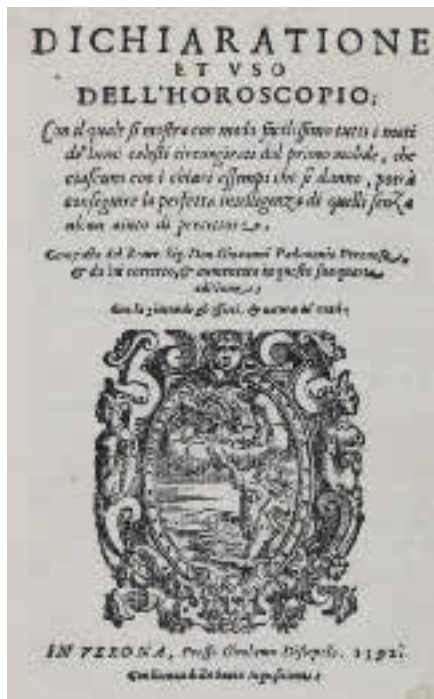 DICHIARATIONE
ET VSO
DELL'HOROSCOPIO;
Con il quale si mostra con modo facilissimo tutti i moti
de' lumi celesti circongirati dal primo mobile, che
ciascuno con i chiari essempi che si danno, potrà
conseguire la perfetta intelligenza di quelli senza
alcun aiuto di precettore.
Composto dal Reuer. Sig. Don Giovanni Padouanio Veronese,
& da lui corretto, & aumentato in questa sua quarta
editione,
Con la gionta de gli & natura de'
IN VERONA, Presso Girolamo Discepolo. 1592.
Con licenza de' Superiori.